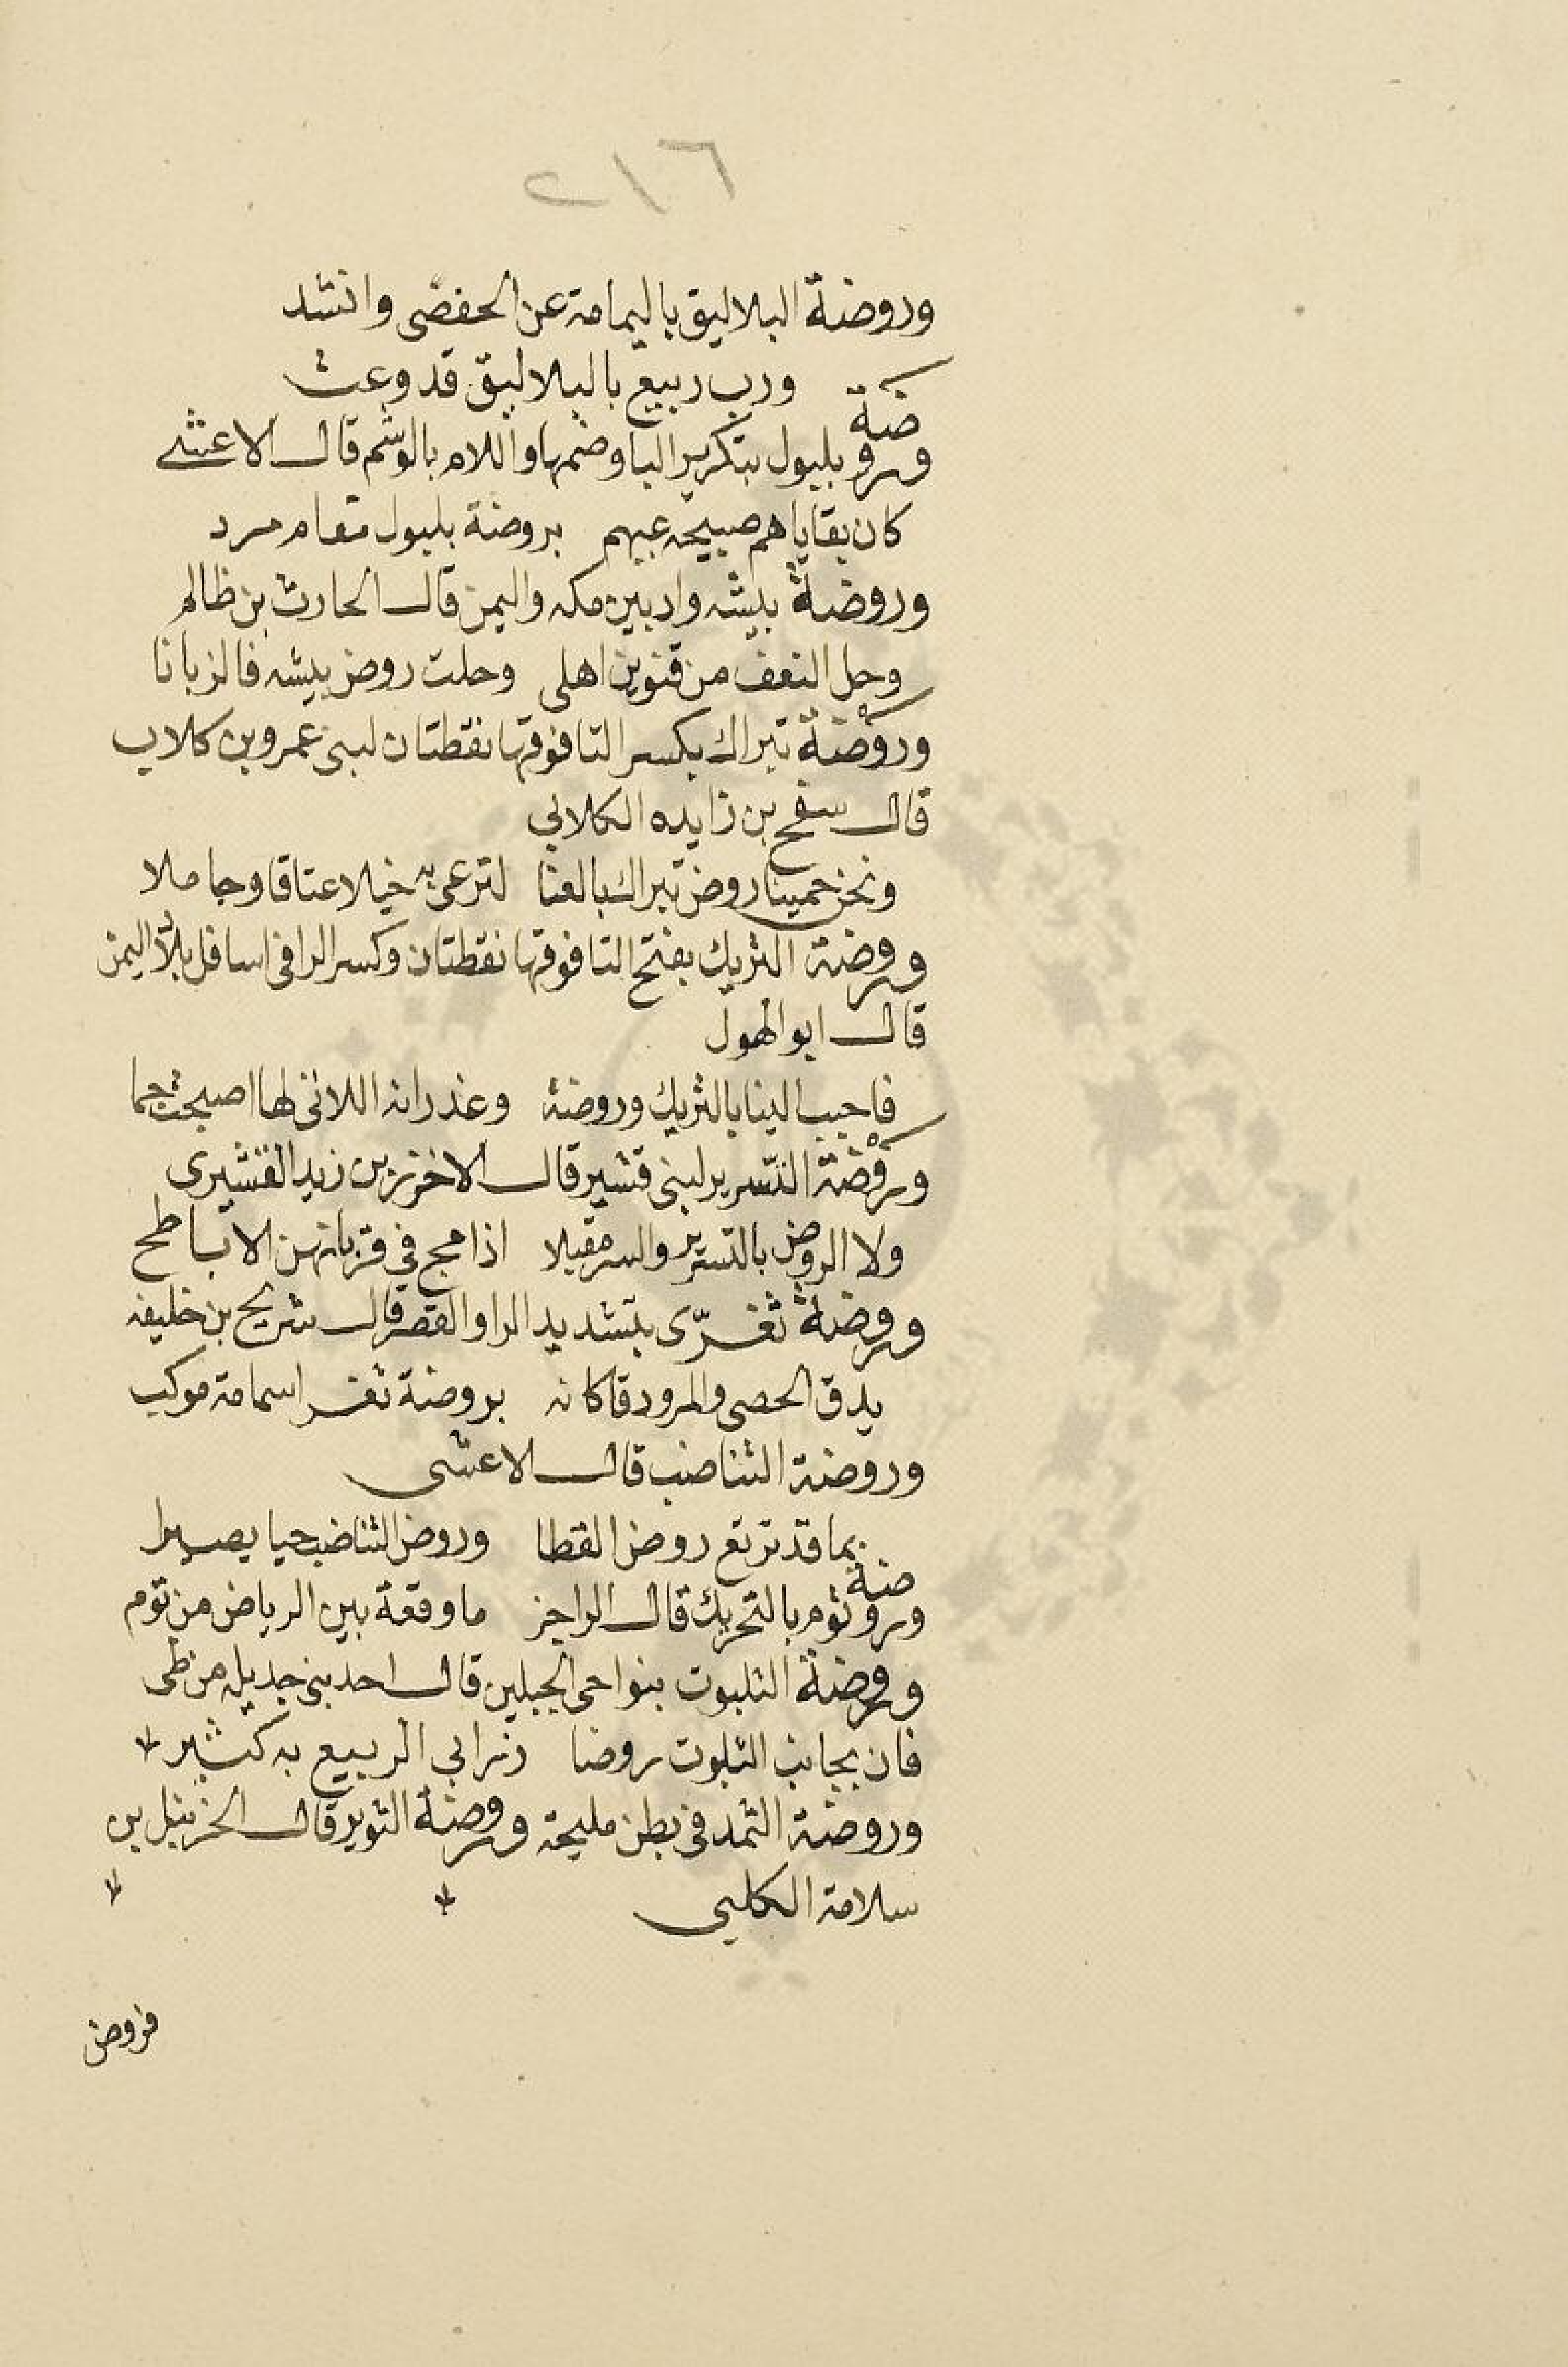 ٢١٦
وروضة البلاليق باليمامة عن الحفصى وانشد
ورب ربيع بالبلاليق قد وعث
وروضة بلبول بتكرير البا وضمها واللام بالوشم قال الاعشى
كان بقاياهم صبيحه غبهم بروضة بلبول نعام مسرد
وروضة بيشه واد بين مكه واليمن قال الحارث بن ظالم
وحل النعف من قنوين اهلى وحلت روض بيشه فالربانا
وروضة تبراك بكسر التا فوقها نقطتان لبنى عمرو بن كلاب
قال سفح بن زايده الكلابي
ونحن حمينا روض تبراك بالقنا لترعى به خيلا عتاقا وجاملا
وروضة التريك بفتح التا فوقها نقطتان وكسر الرا فى اسافل بلاد اليمن
قال ابو الهول
فاحبب الينا بالتريك وروضة وغدرانه اللاتى لها اصبحت حما
وروضة التسرير لبنى قشير قال الاخزر بن زيد القشيرى
ولا الروض بالتسرير والسر مقبلا اذا مج في قربانهن الاباطح
وروضة تغرّى بتشديد الرا والقصر قال شريح بن خليفه
يدق الحصى والمرو دقا كانه بروضة تغرا سمامة موكب
وروضة التناضب قال الاعشى
بما قد تربع روض القطا وروض التناضب حيا يصيرا
وروضة ثوم بالتحريك قال الراجز ما وقعة بين الرياض من توم
وروضة الثلبوت بنواحى الجبلين قال احد بنى جديله من طى
فان بجانب الثلبوت روضا زرابي الربيع به كثير
وروضة الثمد فى بطن مليحة وروضة الثوير قال الحزنبل بن
سلامة الكلبى
فروض